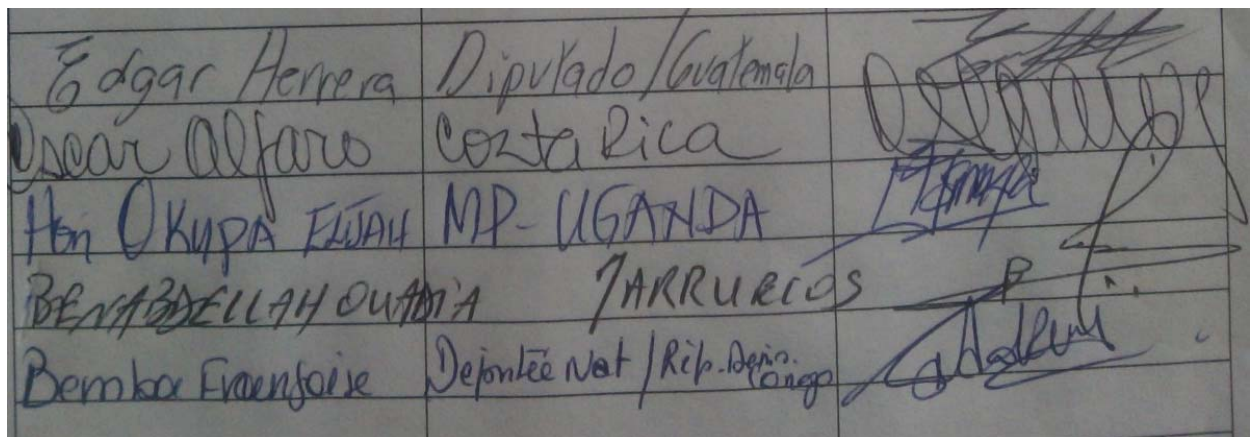 Edgar Herrera Diputado/Guatemala
Oscar Alfaro Cozta Rica
Hon OKUPA ELIJAH MP-UGANDA
BENABDELLAH OUADIA MARRUECOS
Bemba Françoise Députée Nat/Rép. Dém. Congo